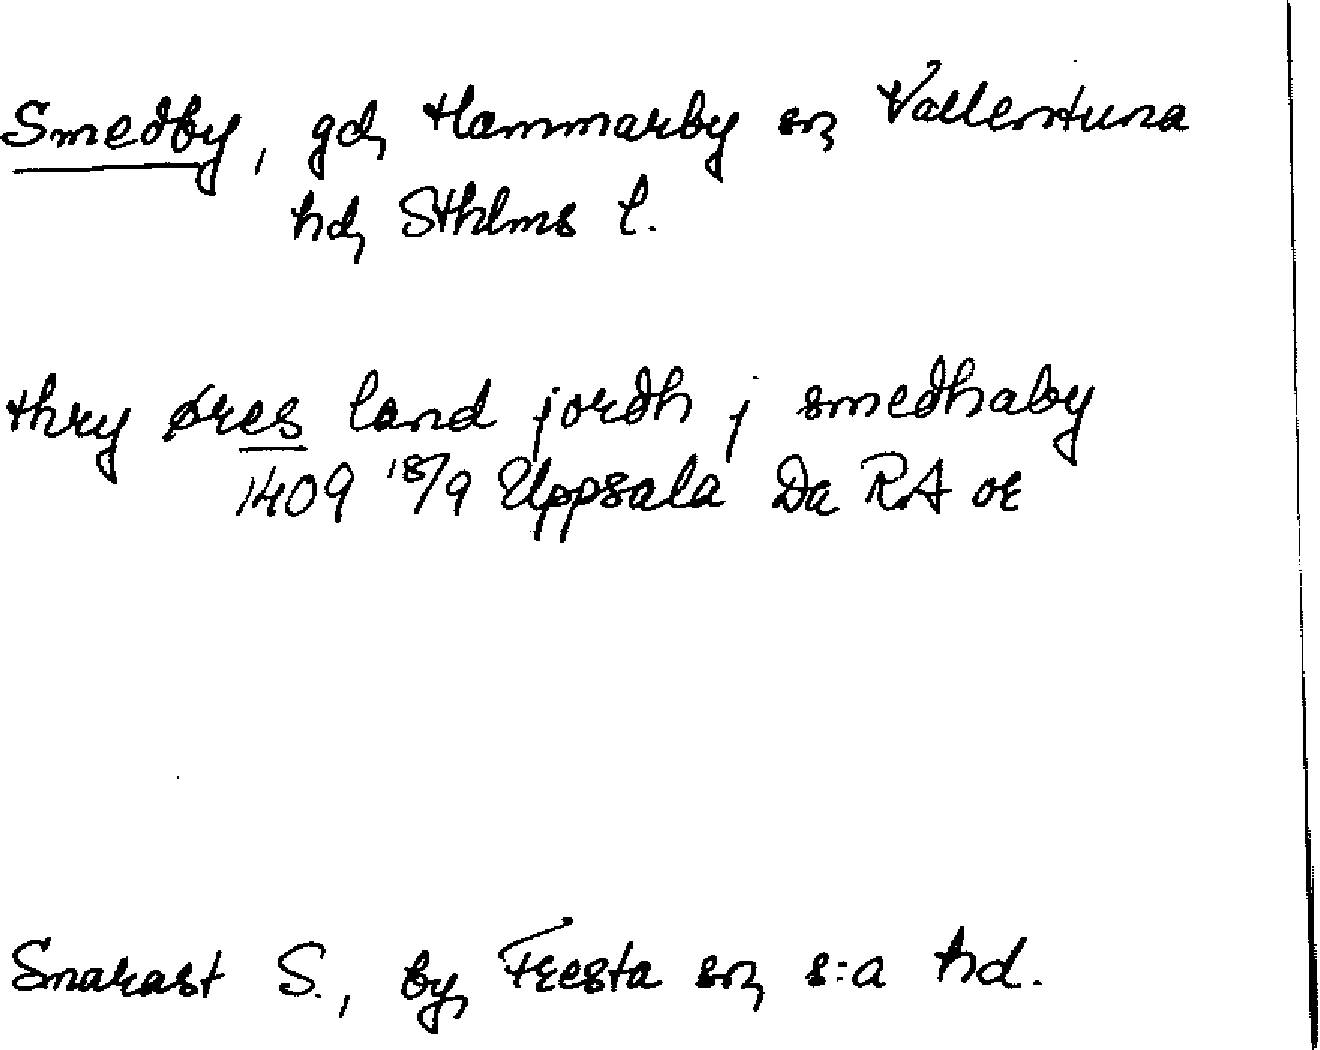 Smedby, gd, Hammarby sn, Vallentuna
hd, Sthlms l.
thry øres land jordh j smedhaby
1409 18/9 Uppsala Da RA or
Snakast S., by, Fresta sn, s:a hd.